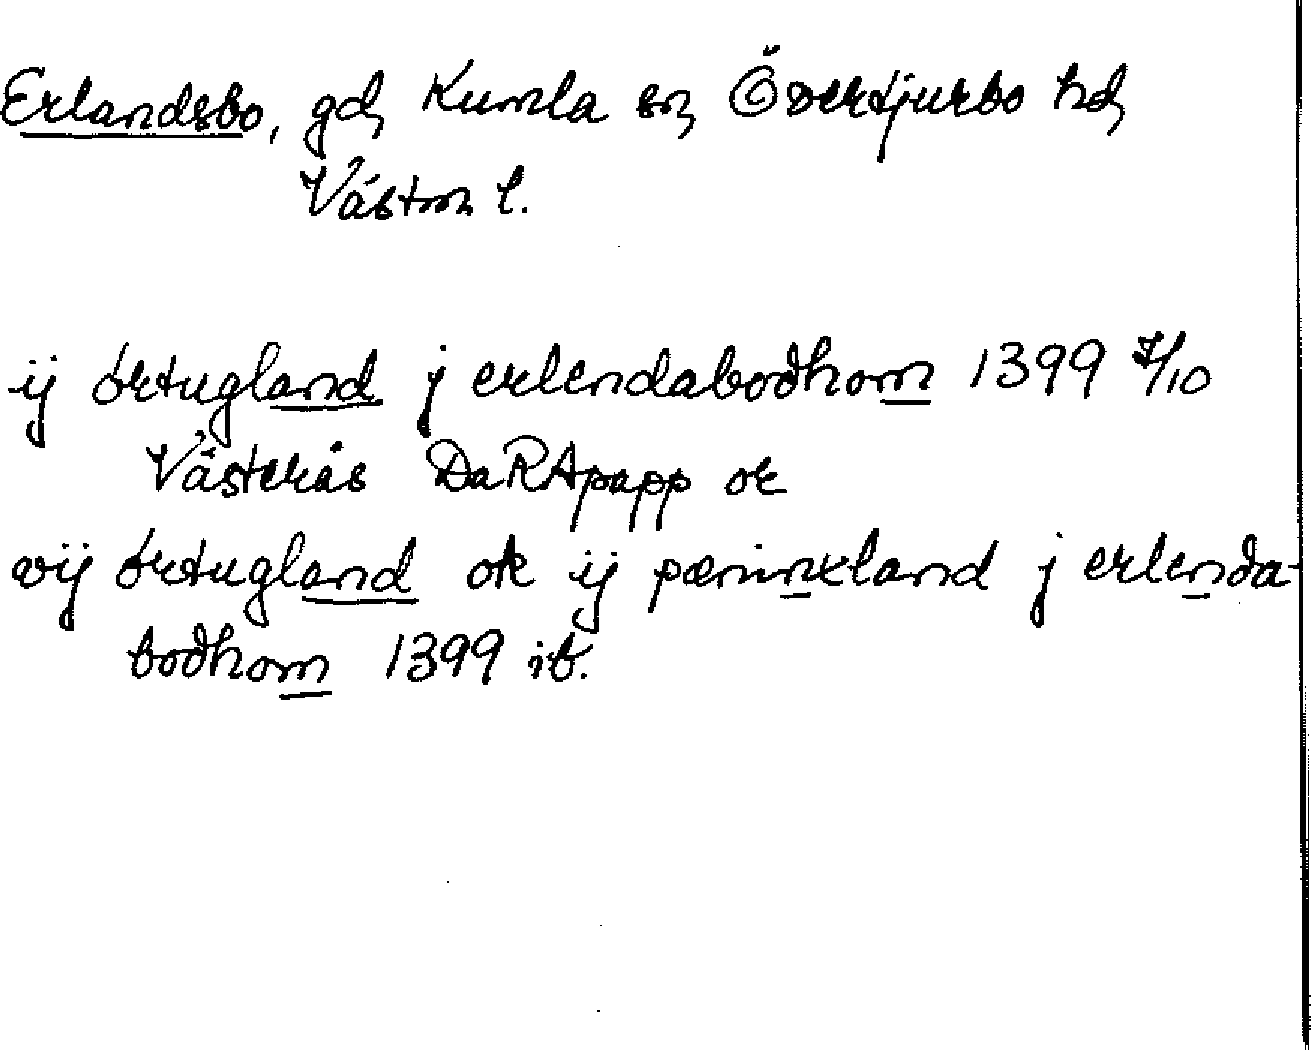 Erlandsbo, gd, Kumla sn, Övertjurbo hd,
Västm l.
ij örtugland j erlendabodhom 1399 7/10
Västerås DaRApapp ok
vij örtugland ok ij pæninxland j erlenda-
bodhom 1399 ib.